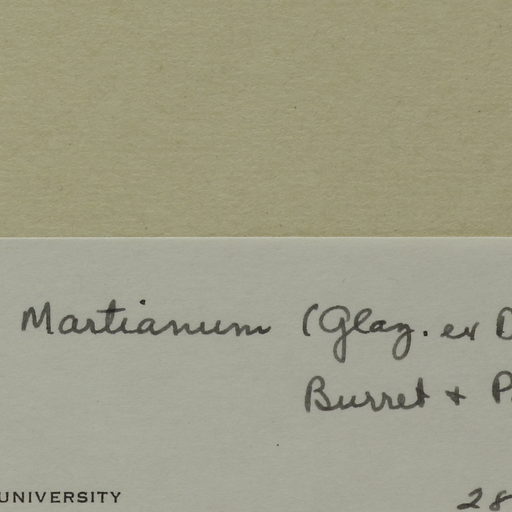 Martianum (Glaz. ex D
Burret + P
UNIVERSITY 28